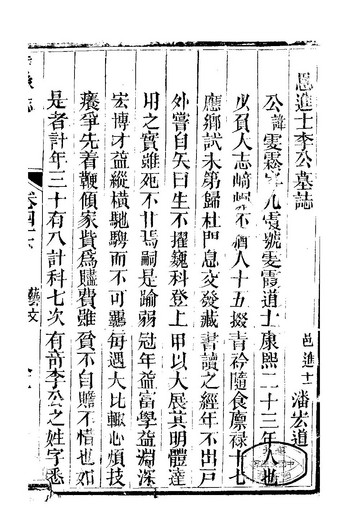 恩進士李公墓誌
邑進士潘宏道
公諱雯霨字九霞號雯霞道士康熙二十三年人也
少負人志崎嶇不猶人十五掇青衿隨食廪祿十七
應鄉試未第歸杜門息交發藏書讀之經年不出戸
外嘗自矢曰生不擢巍科登上甲以大展其明體達
用之實雖死不甘焉嗣是踰弱冠年益富學益淵深
宏博才益縱橫馳騁而不可羈每遇大比輒心煩技
癢爭先着鞭傾家貲爲贐費雖貧不自贍不惜也如
是者計年三十有八計科七次有奇李公之姓字悉
卷四六
藝文